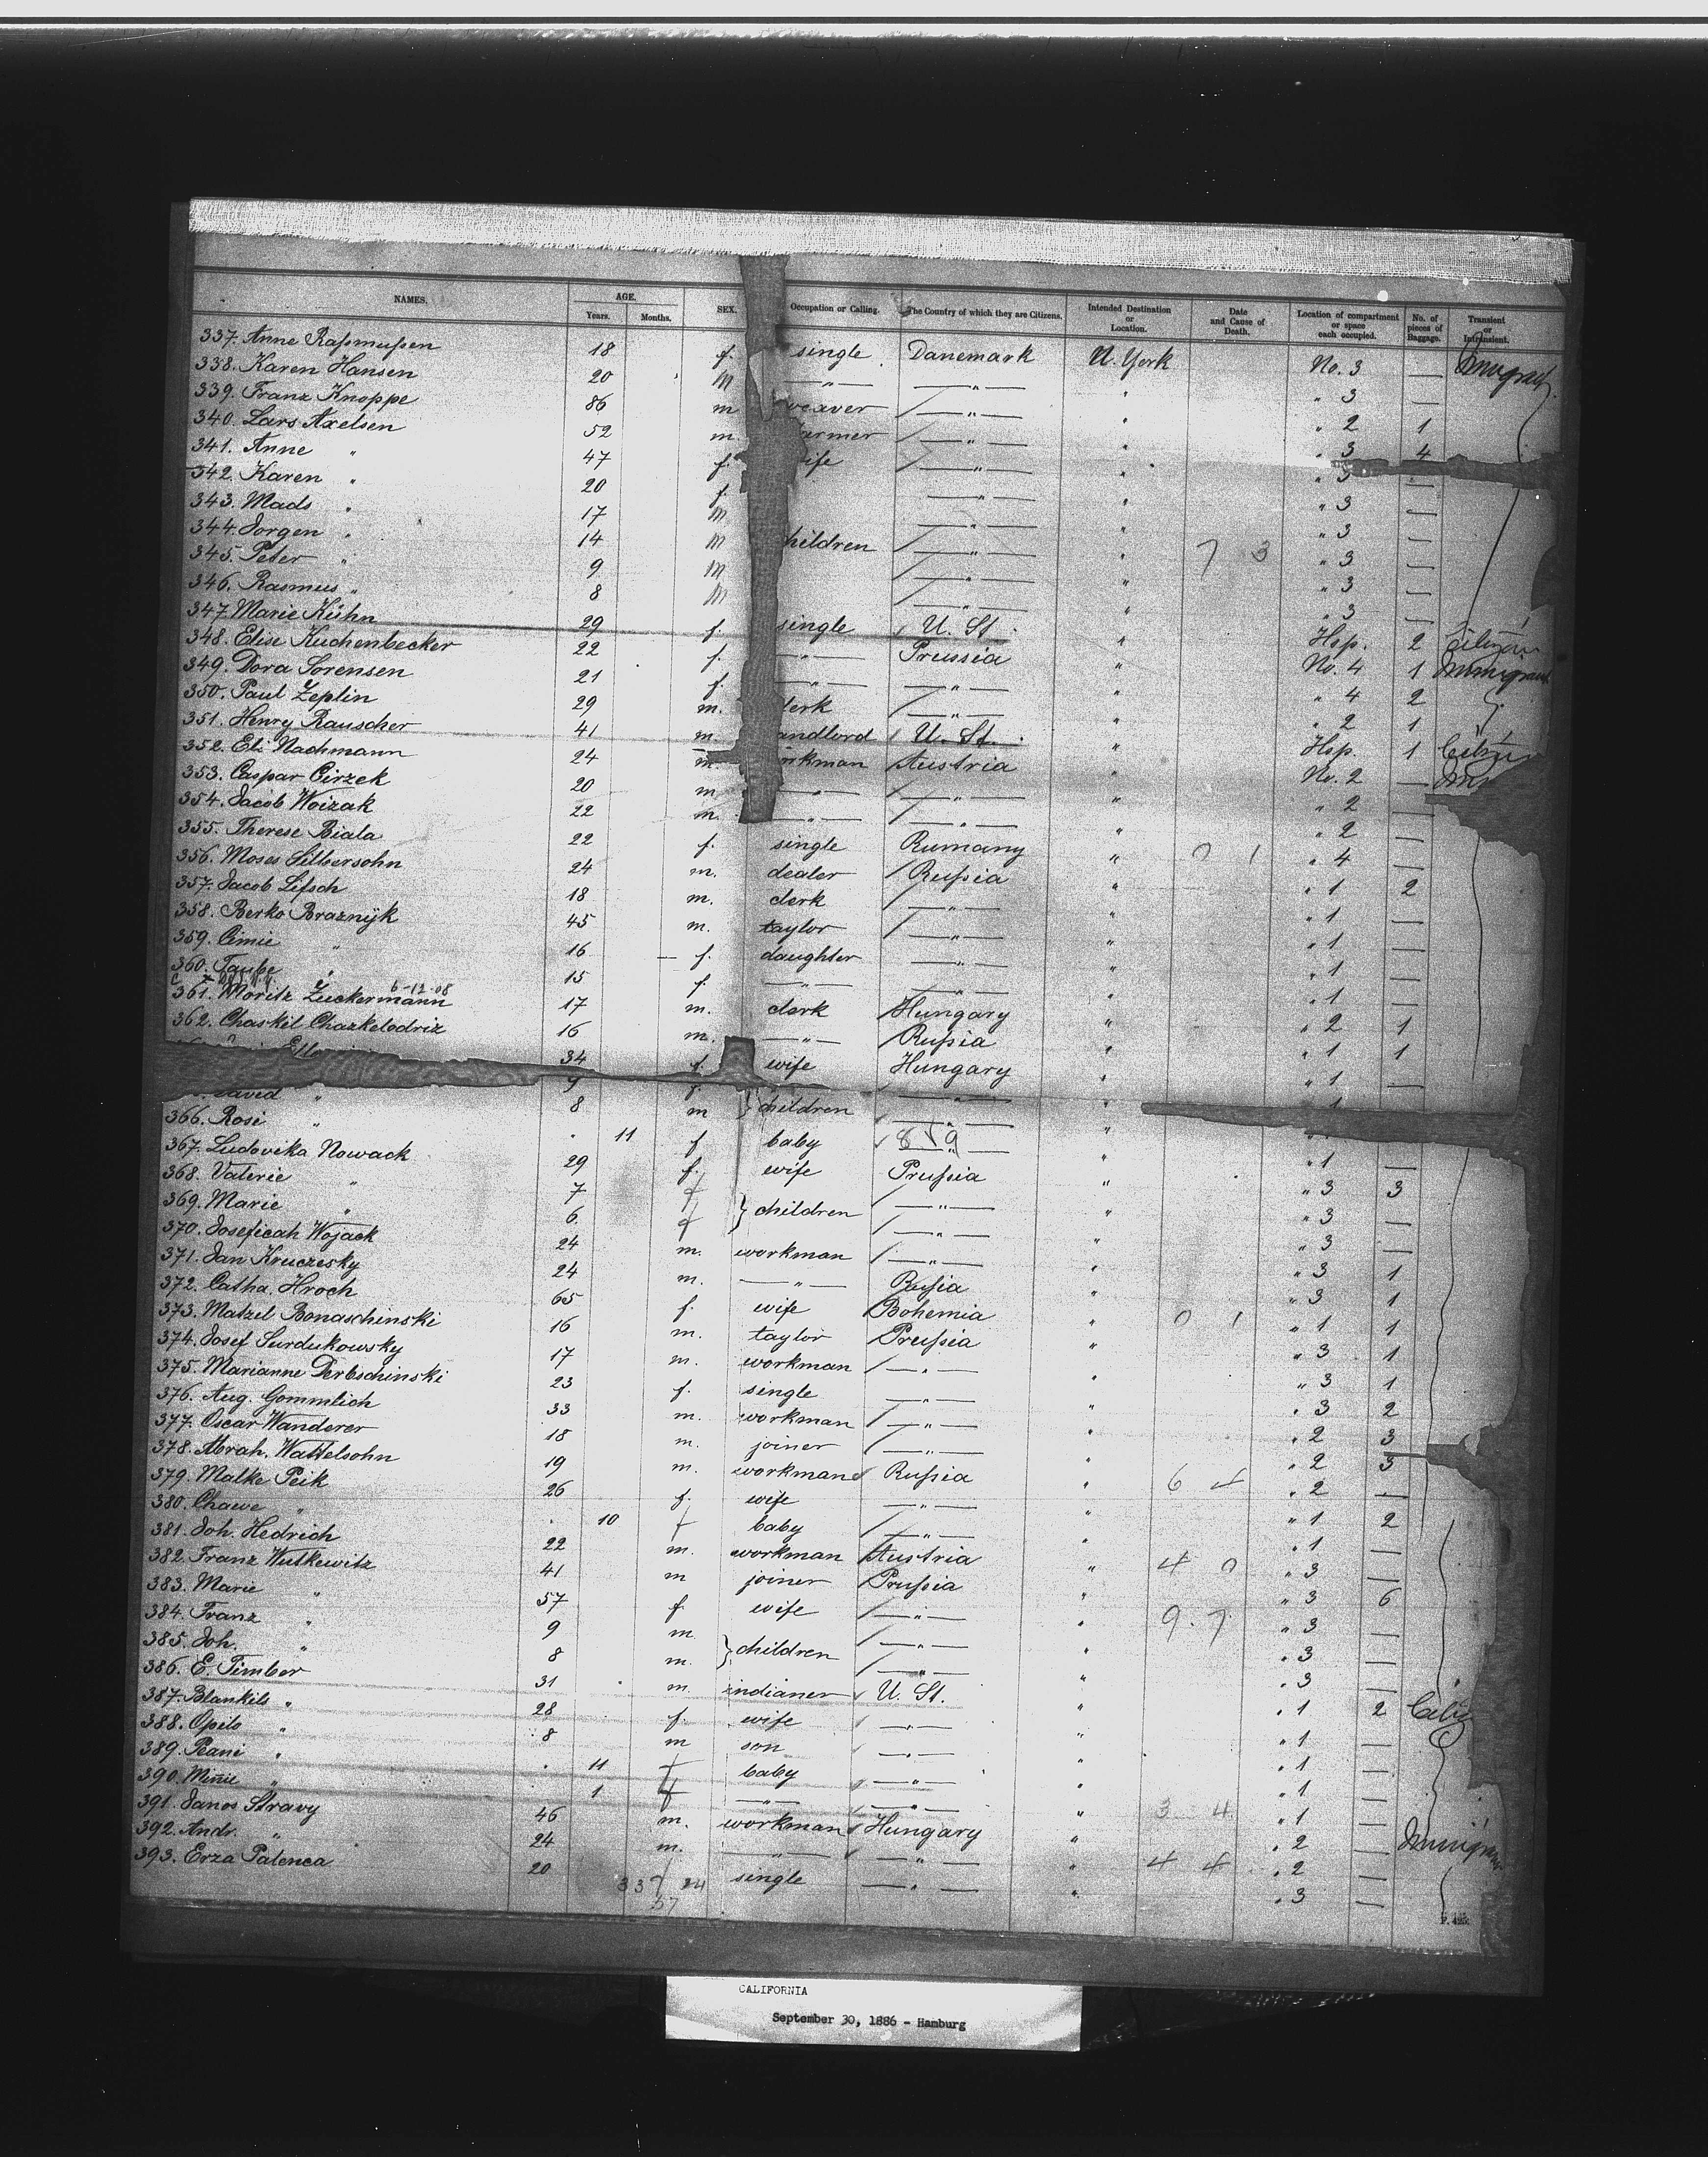 NAMES. AGE. Years. Months. SEX. Occupation or Calling. The Country of which they are Citizens. Intended Destination or Location. Date and Cause of Death. Location of compartment or space each occupied. No. of pieces of Baggage. Transient or Intransient.
337. Anne Raßmußen 18 f. single Danemark N. York No. 3 —
338. Karen Hansen 20 —"— —"— " " 3 —
339. Franz Knoppe 86 m weaver —"— " " 2 1
340. Lars Axelsen 52 m. armer —"— " " 3 4
341. Anne " 47 f. ife —"— " " 3 —
342. Karen " 20 f. —"— " " 3 —
343. Mads " 17 m —"— " " 3 —
344. Jorgen " 14 m hildren —"— " " 3 —
345. Peter " 9 m —"— " " 3 —
346. Rasmus " 8 m —"— " " 3 —
347. Marie Kühn 29 f. single U. St. " Hsp. 2
348. Elise Kuchenbecker 22 f. —"— Prussia " No. 4 1
349. Dora Sorensen 21 f. —"— —"— " " 4 2
350. Paul Zeplin 29 m. lerk —"— " " 2 1
351. Henry Rauscher 41 m. andlord U. St. " Hsp. 1
352. Eli Nachmann 24 m. orkman Austria " No. 2 —
353. Caspar Cirzek 20 m —"— —"— " " 2 —
354. Jacob Woizak 22 m. —"— —"— " " 2 —
355. Therese Biala 22 f. single Rumany " " 4 —
356. Moses Silbersohn 24 m. dealer Rußia " " 1 2
357. Jacob Lifsch 18 m. clerk —"— " " 1 —
358. Berko Braznijk 45 m. taylor —"— " " 1 —
359. Cimie " 16 f. daughter —"— " " 1 —
360. Taube " 15 f. —"— —"— " " 1 —
6-12-08
361. Moritz Zuckermann 17 m. clerk Hungary " " 2 1
362. Chaskil Chazkelodriz 16 m. —"— Rußia " " 1 1
34 f. wife Hungary " " 1 —
9 f. —"— "
David " 8 m children —"— "
366. Rosi " 11 f baby —"— " " 1 —
367. Ludovika Nowack 29 f. wife Prußia " " 3 3
368. Valerie " 7 f —"— " " 3 —
369. Marie " 6 f children —"— " " 3 —
370. Joseficah Wojack 24 m. workman —"— " " 3 1
371. Jan Kruczesky 24 m. —"— Rußia " " 3 1
372. Catha. Hroch 65 f. wife Bohemia " " 1 1
373. Matzel Bonaschinski 16 m. taylor Prußia " " 3 1
374. Josef Surdukowsky 17 m. workman —"— " " 3 1
375. Marianne Derbschinski 23 f. single —"— " " 3 2
376. Aug. Gommlich 33 m. workman —"— " " 2 3
377. Oscar Wanderer 18 m. joiner —"— " " 2 3
378. Abrah. Wattelsohn 19 m. workman Rußia " " 2 —
379. Malke Peik 26 f. wife —"— " " 1 2
380. Chawe " 10 f baby —"— " " 1 —
381. Joh. Hedrich 22 m. workman Austria " " 3 —
382. Franz Wutkewitz 41 m joiner Prußia " " 3 6
383. Marie " 57 f. wife —"— " " 3 —
384. Franz " 9 m. —"— " " 3 —
385. Joh. " 8 m. children —"— " " 3 —
386. E. Timber 31 m. indianer U. St. " " 1 2
387. Blankils " 28 f. wife —"— " " 1 —
388. Opils " 8 m son —"— " " 1 —
389. Peani " 11 f baby —"— " " 1 —
390. Minie " 1 f —"— —"— " " 1 —
391. Janos Stravy 46 m. workman Hungary " " 2 —
392. Andr. " 24 m. —"— —"— " " 2 —
393. Erza Palenca 20 single —"— " " 3 —
CALIFORNIA
September 30, 1886 - Hamburg